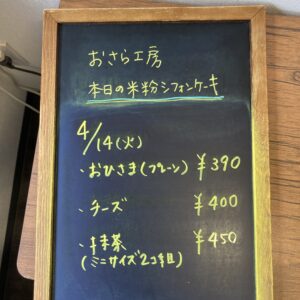 おさら工房
本日の米粉シフォンケーキ
4/14(火)
・おひさま(プレーン) ¥390
・チーズ ¥400
・抹茶 ¥450
(ミニサイズ2コ